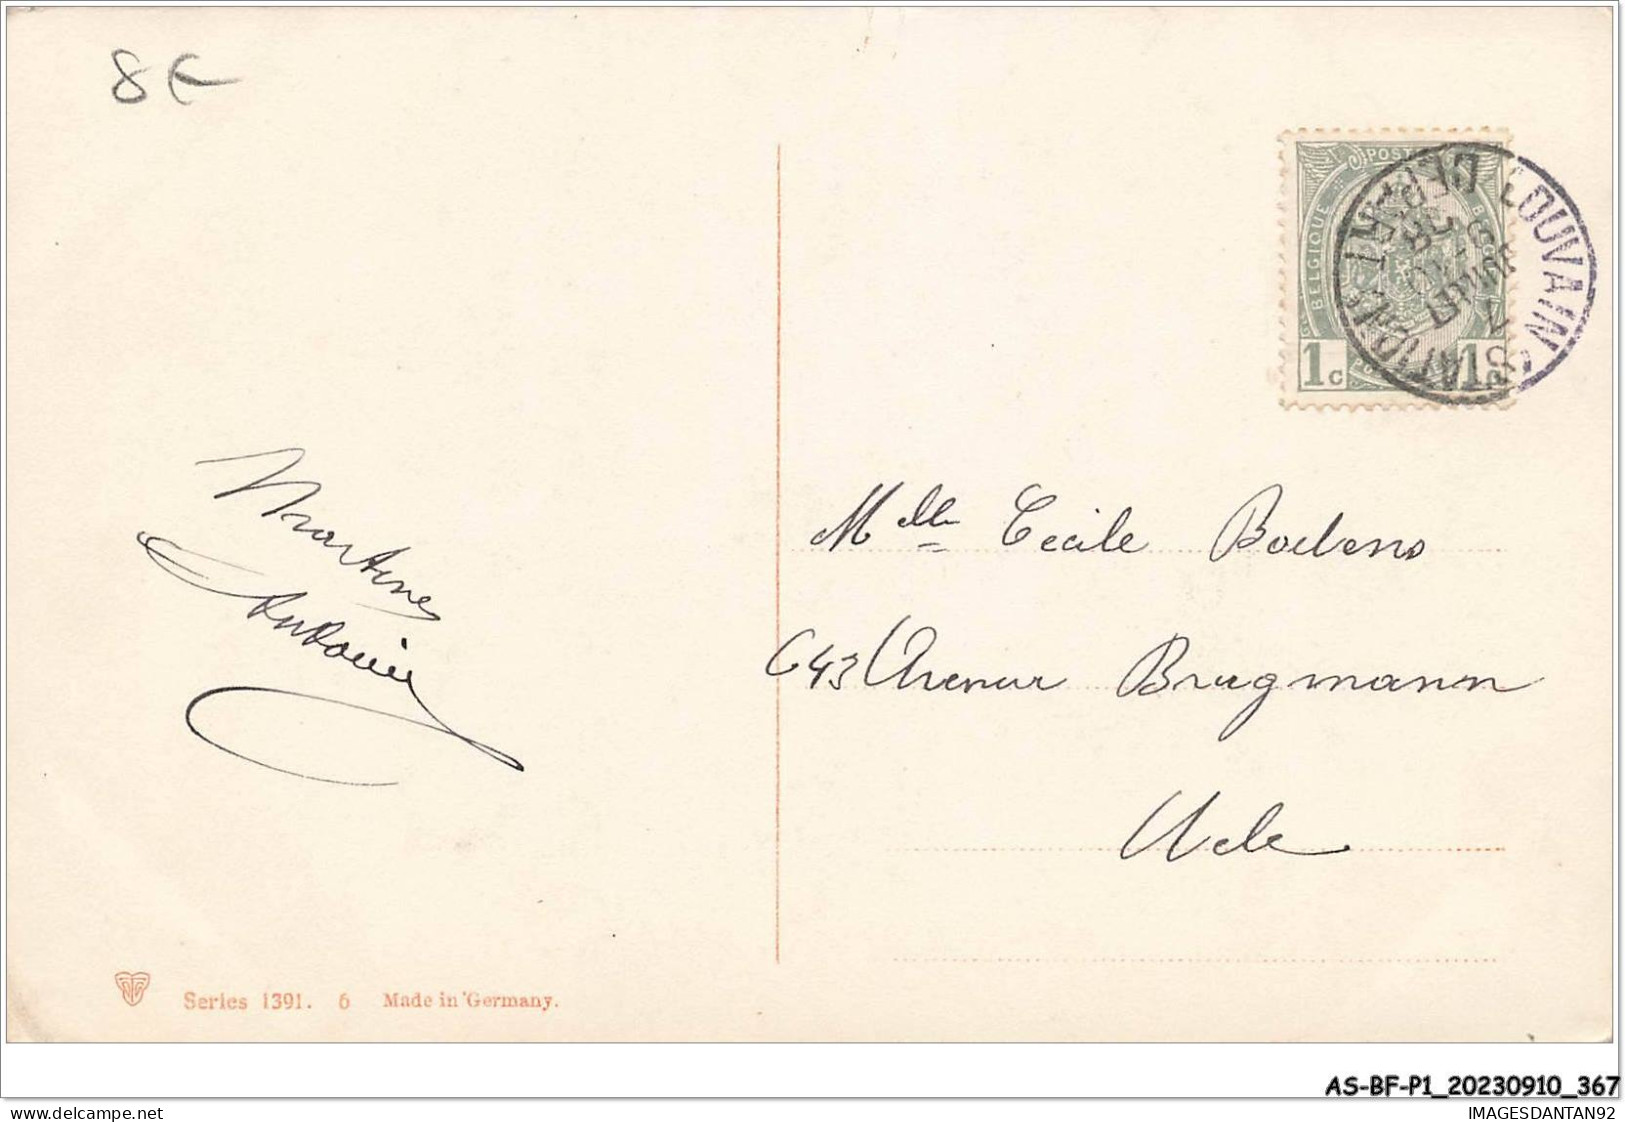 8€
POST
BELGIQUE
1c
1c
LOUVAIN
STATION
DEPART
7
JUILLET
Martine
Antoine
Mlle Cécile Boelens
643 Avenue Brugmann
Uccle
Series 1391. 6 Made in Germany.
AS-BF-P1_20230910_367
www.delcampe.net
IMAGESDANTAN92